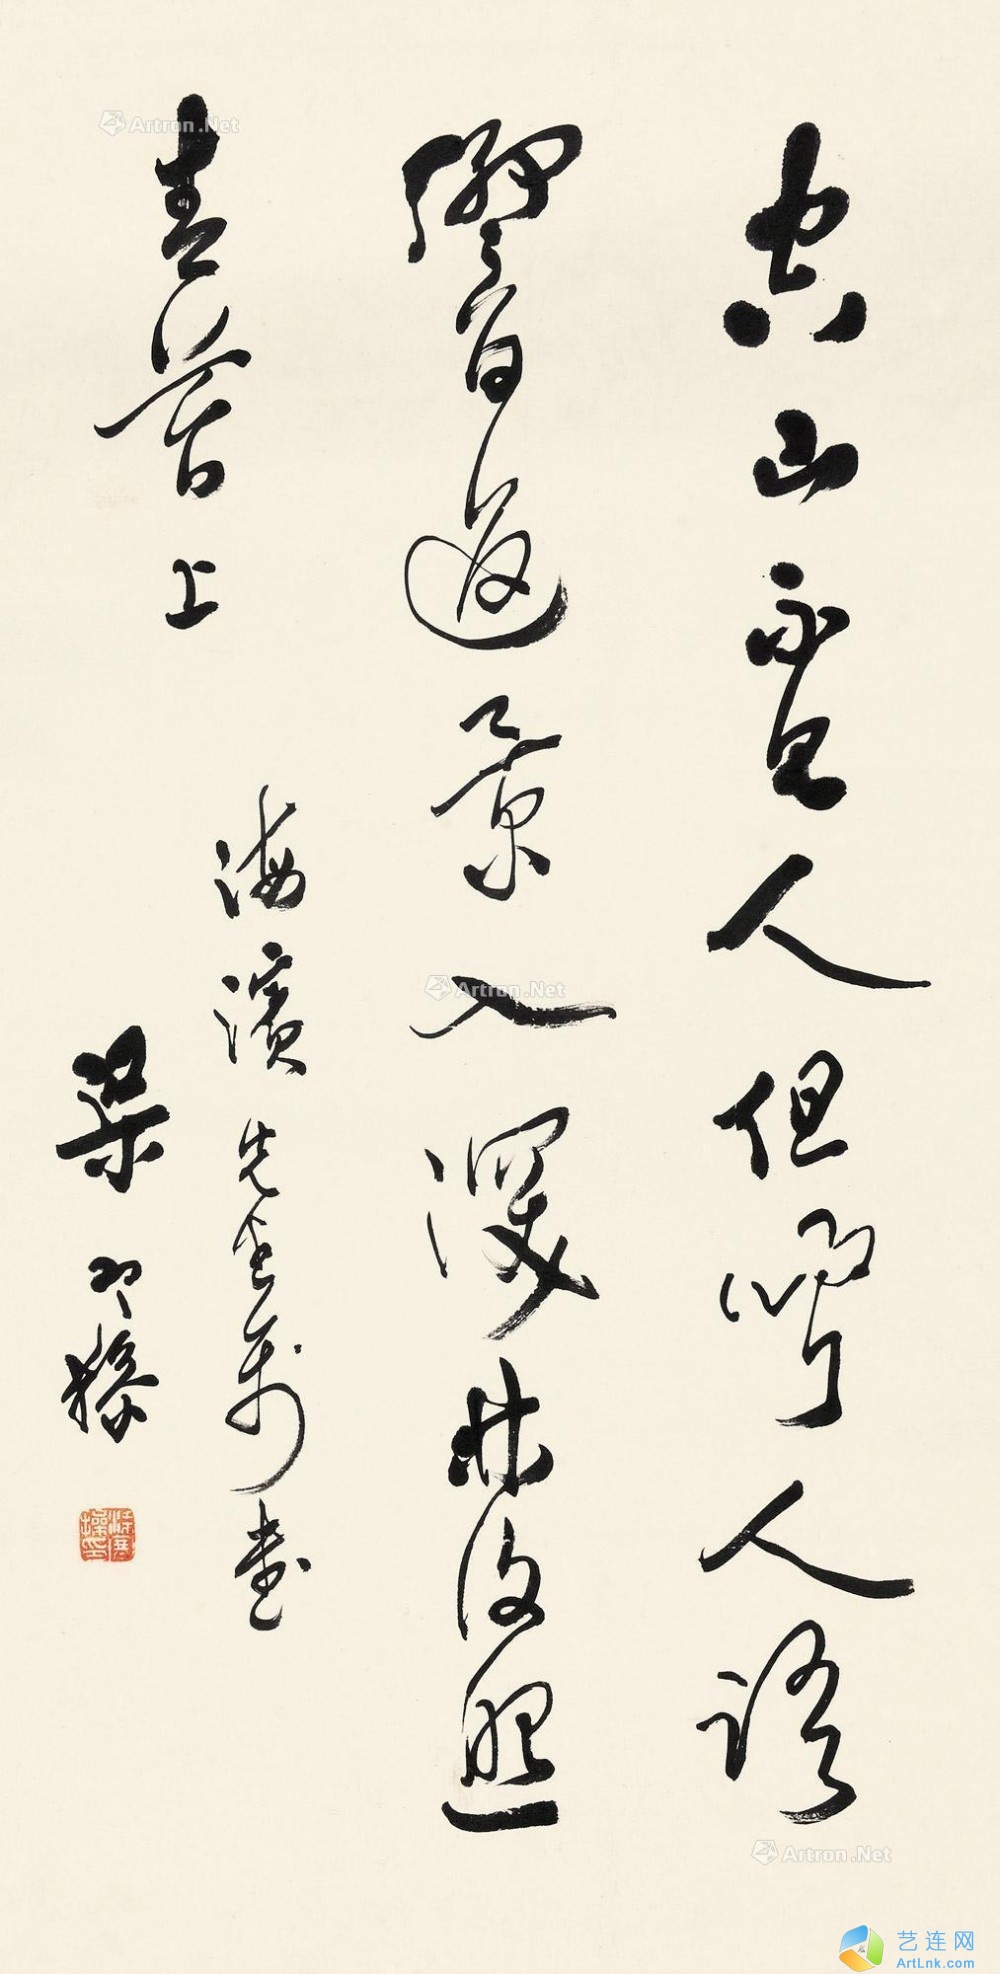 空山不見人但聞人語
響返景入深林復照
青苔上
海濱先生屬書
梁寒操
梁寒操印
Artron.Net
Artron.Net
Artron.Net
艺连网
ArtLnk.com